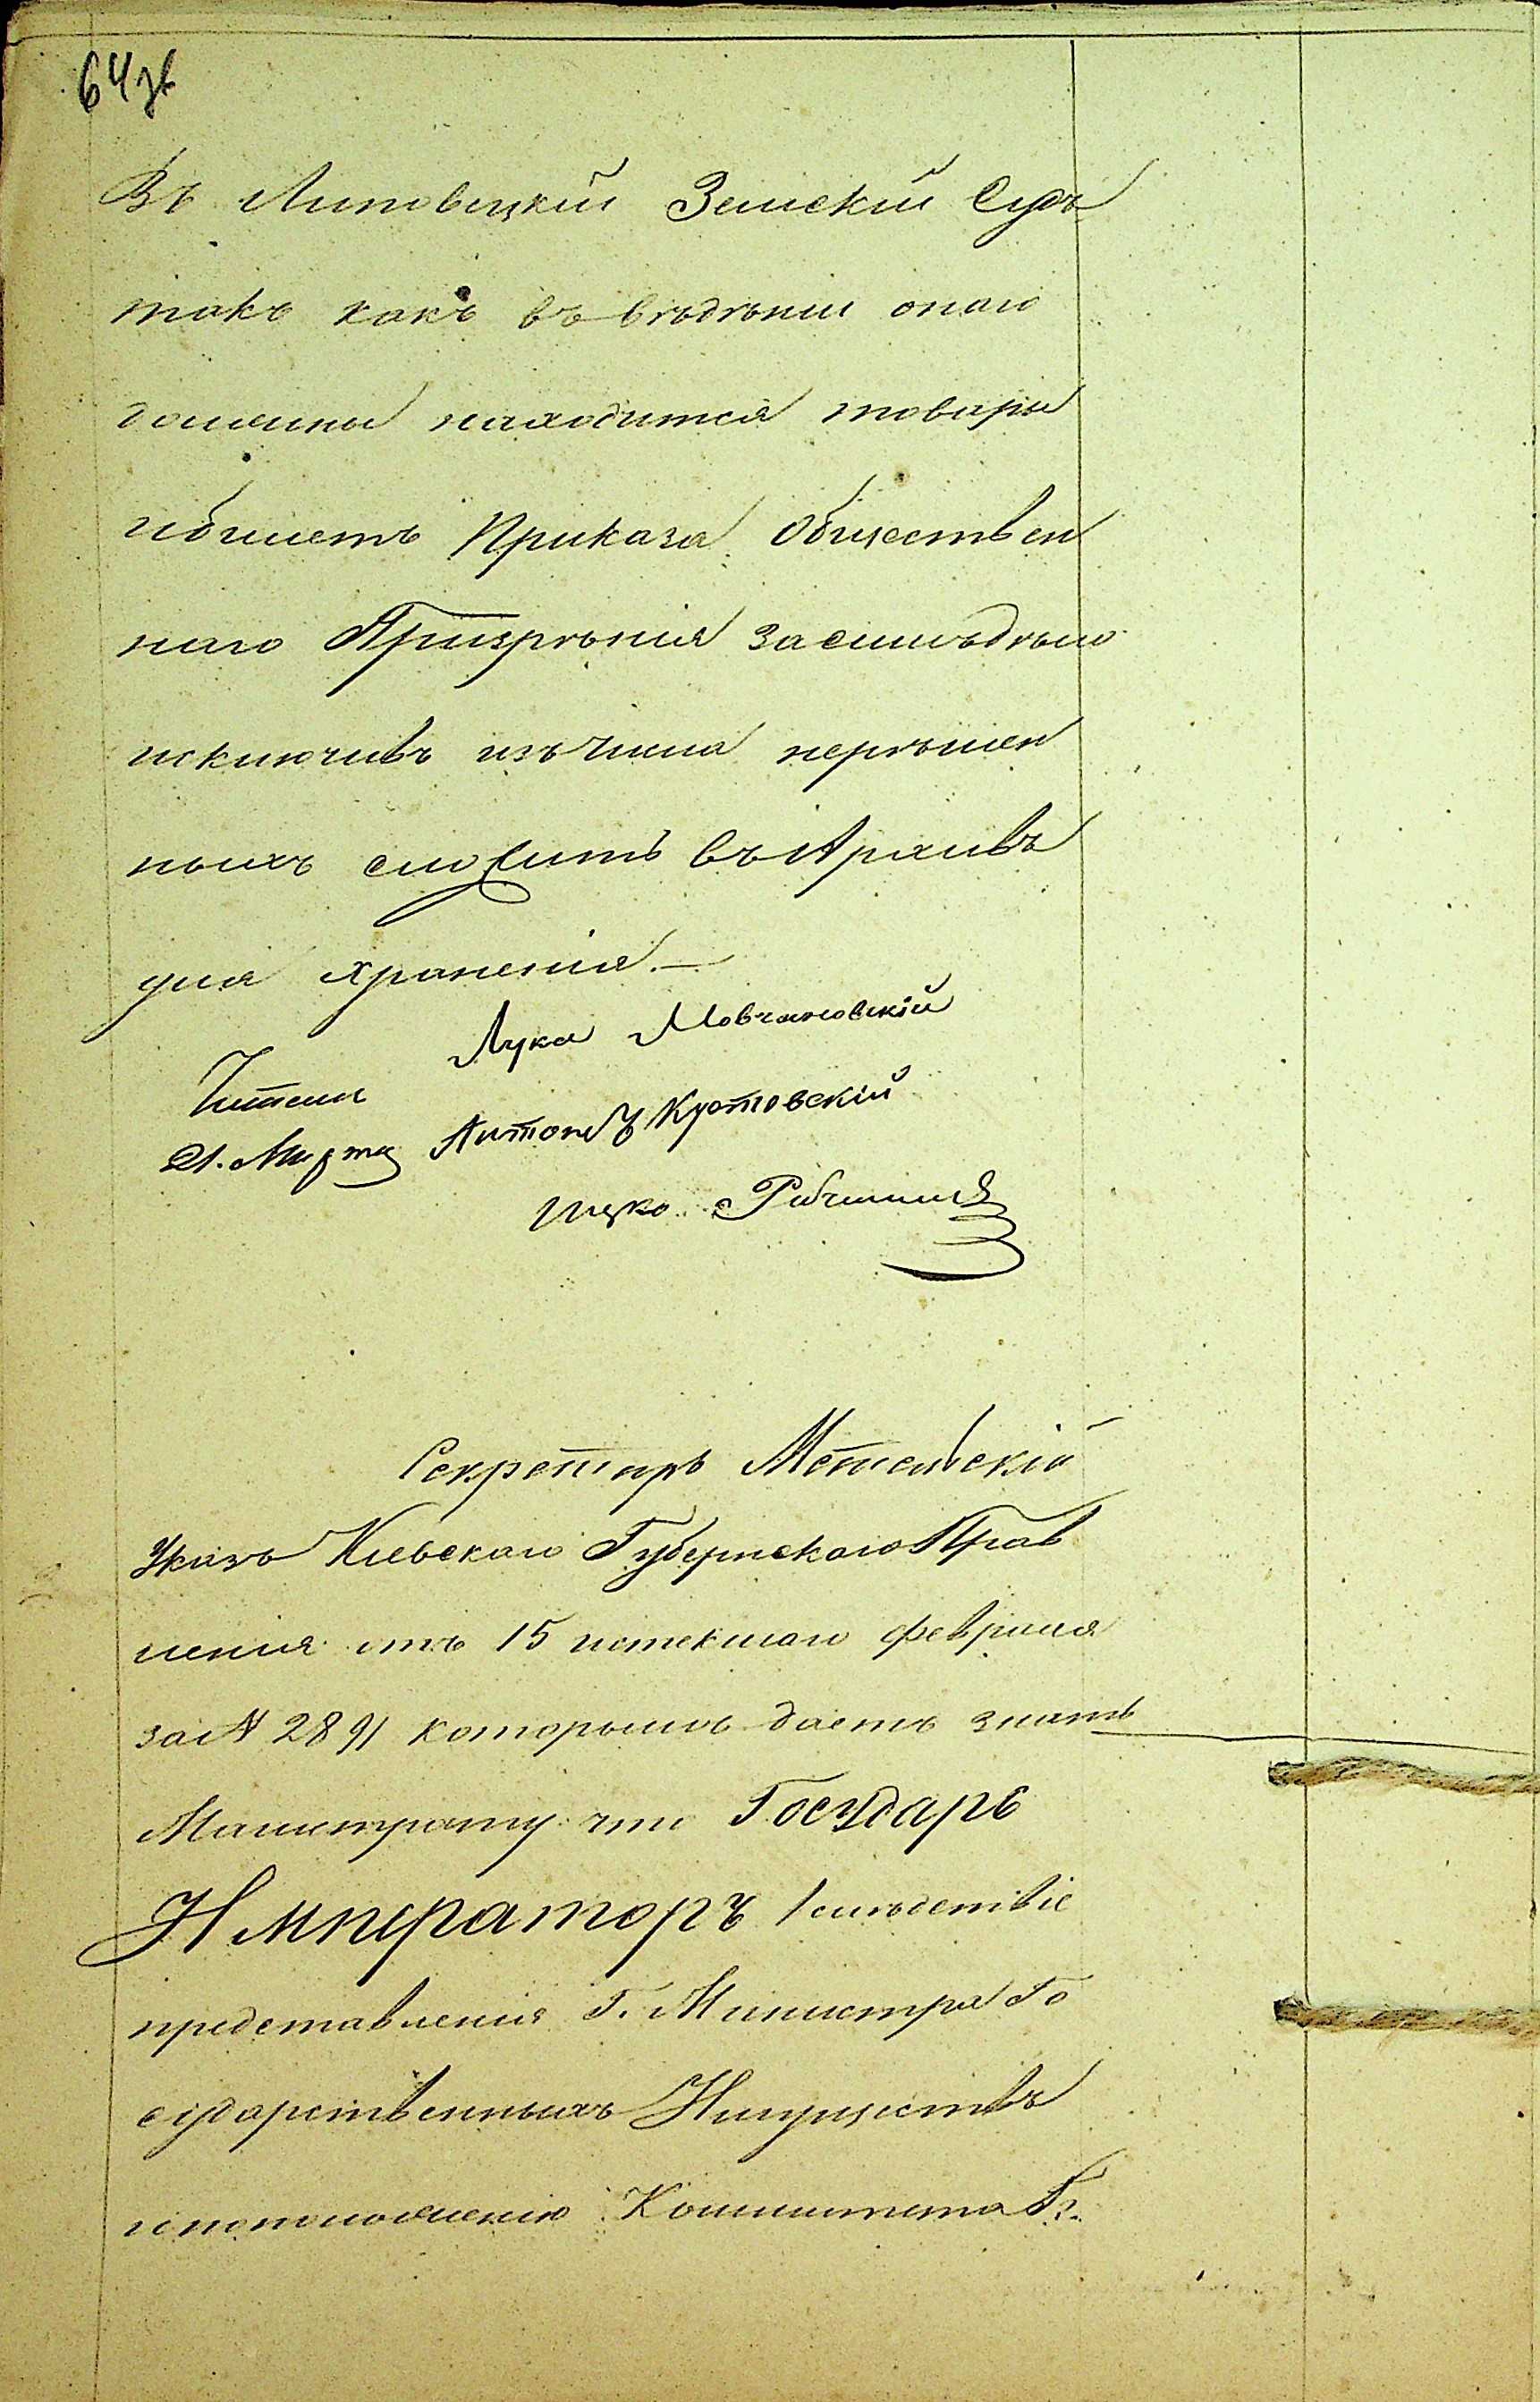 64 зв
Въ Липовецкій Земскій Судъ
такъ какъ въ вѣдѣніи онаго
должны находится товары
и билетъ Приказа Обществен
наго Призрѣнія За симъ дѣло
исключивъ изъ числа нерѣшен
ныхъ сложить въ Архивъ
для храненія. —
Лука Мовчановскій
Читали
21. Марта Антонъ Кутовскій
Ицко
Секретарь Метельскій
Указъ Кіевскаго Губернскаго Прав
ленія отъ 15 истекшаго февраля
за N 2891 которымъ даетъ знать
Магистрату что Государь
Императоръ вслѣдствіе
представленія Г. Министра Го
сударственныхъ Имуществъ
и по положенію Комитета Гг.